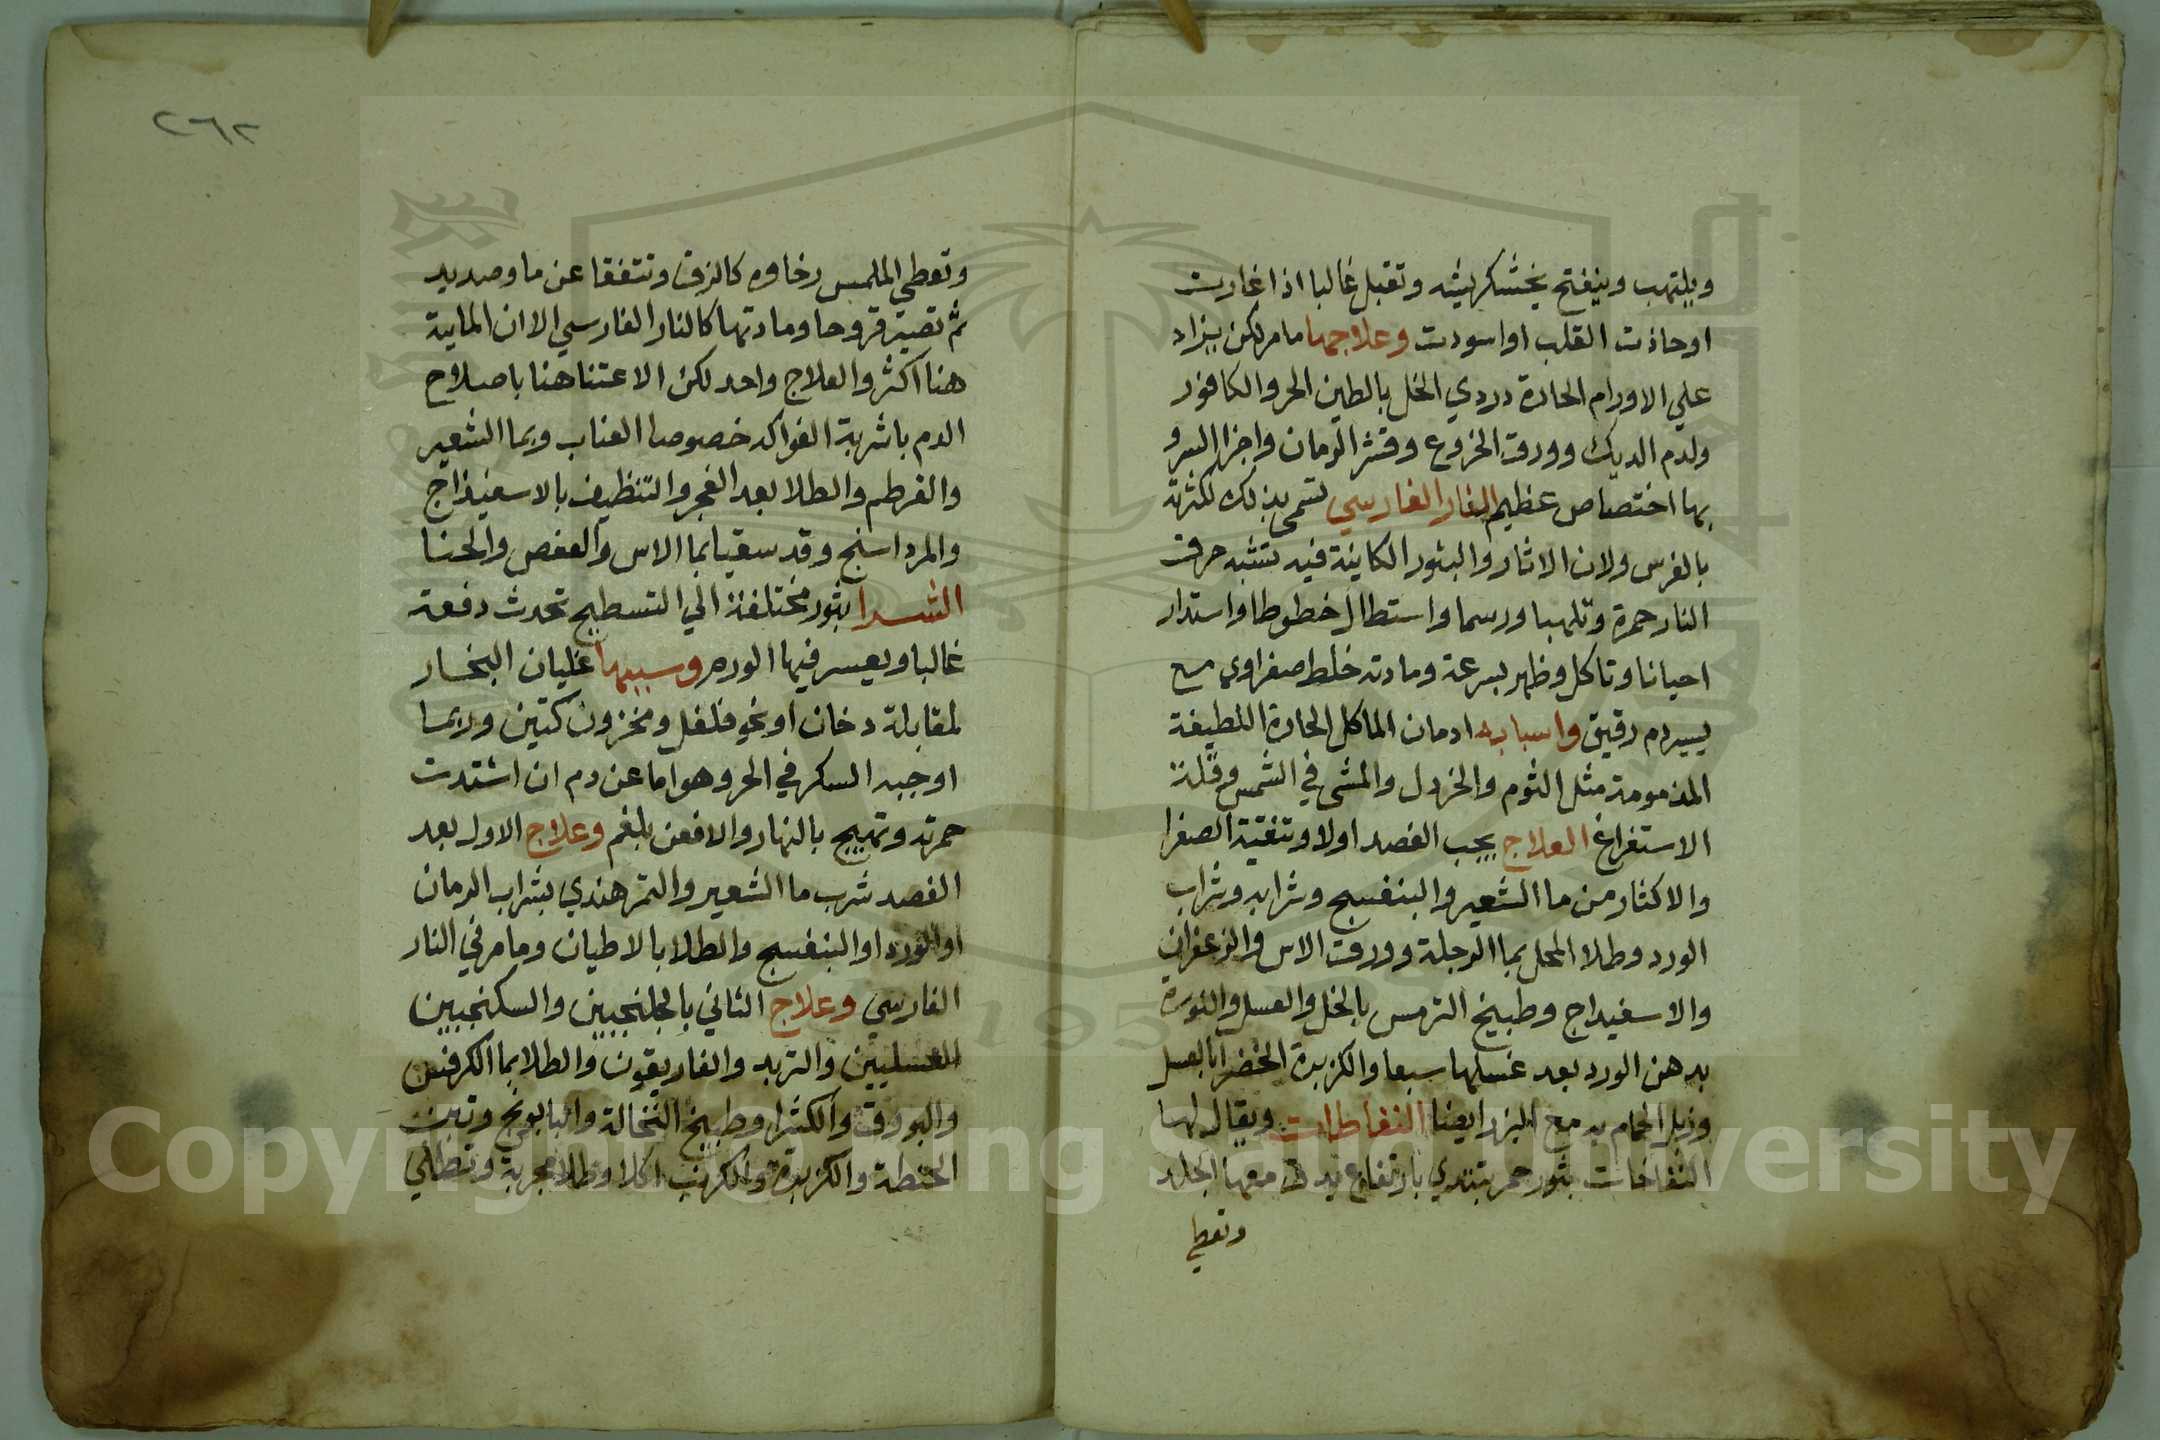 ويلتهب وينفتح بخشكريشه وتقبل غالبا اذا غارت
اوحاذت القلب او اسودت وعلاجها مامر لكن يزاد
علي الاورام الحادة دردي الخل بالطين الحر والكافور
ولدم الديك وورق الخروع وقشر الرمان واجزا السرو
بها اختصاص عظيم النار الفارسي تسمى بذلك لكثرته
بالفرس ولان الاثار والبثور الكاينة فيه تشبه حرق
النار حمرة وتلهبا ورسما واستطال خطوطا واستدار
احيانا وتاكل وظهر بسرعة ومادته خلط صفراوي مع
يسير دم رقيق واسبابه ادمان الماكل الحادة اللطيفة
المذمومة مثل الثوم والخردل والمشى في الشمس وقلة
الاستفراغ العلاج يجب الفصد اولا وتنقية الصفرا
والاكثار من ما الشعير والبنفسج وشرابه وشراب
الورد وطلا المحل بما الرجلة وورق الاس والزعفران
والاسفيداج وطبيخ الترمس بالخل والعسل والنورة
بدهن الورد بعد غسلها سبعا والكزبرة الخضرا بالعسل
وزبل الحمام به مع البزر ايضا النفاطات ويقال لها
النفاخات بثور حمر تبتدي بارتفاع يدق معها الجلد
وتعطي
٢٦٢
وتعطي الملمس رخاوه كالزق وتتفقا عن ما وصديد
ثم تصير قروحا ومادتها كالنار الفارسي الا ان المايية
هنا اكثر والعلاج واحد لكن الاعتنا هنا باصلاح
الدم باشربة الفواكه خصوصا العناب وبما الشعير
والقرطم والطلا بعد الفجر والتنظيف بالاسفيذاج
والمرداسنج وقد سقيا بما الاس والعفص والحنا
الشرا بثور مختلفة الي التسطيح تحدث دفعة
غالبا ويعسر فيها الورم وسببها غليان البخار
لمقابلة دخان او نحو فلفل ومخزون كتين وربما
اوجبه السكر في الحر وهو اما عن دم ان اشتدت
حمرته وتهييج بالنهار والا فعن بلغم وعلاج الاول بعد
الفصد شرب ما الشعير والتمر هندي بشراب الرمان
او الورد او البنفسج والطلا بالاطيان وما مر في النار
الفارسي وعلاج الثاني بالجلنجبين والسكنجبين
العسليين والتربد والغاريقون والطلا بما الكرفس
والبورق والكثيرا وطبيخ النخالة والبابونج وتبن
الحنطة والكزبرة والكرنب اكلا وطلا مجربة وتطلي
Copyright © King Saud University
1957